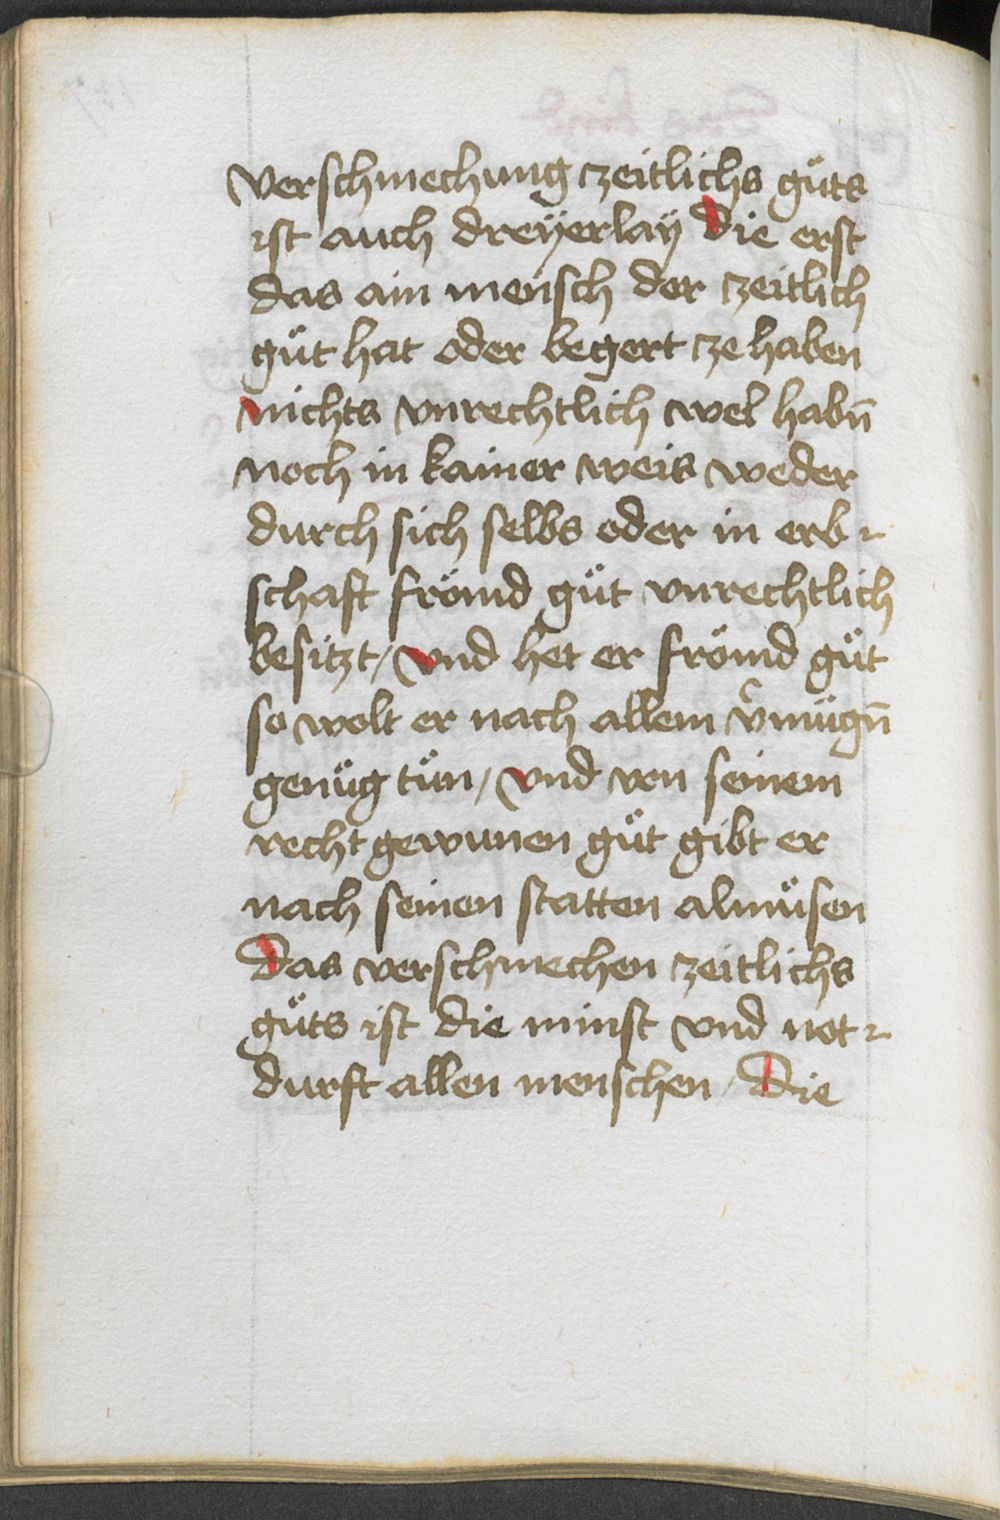 verschmechung zeitlichs guͤts
ist auch dreÿerlaÿ Die erst
das ain mensch der zeitlich
guͤt hat oder begert ze haben
nichts vnrechtlich wel habn̄
noch in kainer weis weder
durch sich selbs oder in erb-
schaft froͤmd guͤt vnrechtlich
besitzt / vnd het er froͤmd guͤt
so wolt er nach allem v̉mügn̄
genuͤg tuͤn / vnd von seinem
recht gewunen guͤt gibt er
nach seinen statten almuͤsen
Das verschmechen zeitlichs
guͤts ist die minst vnd not-
durft allen menschen / Die